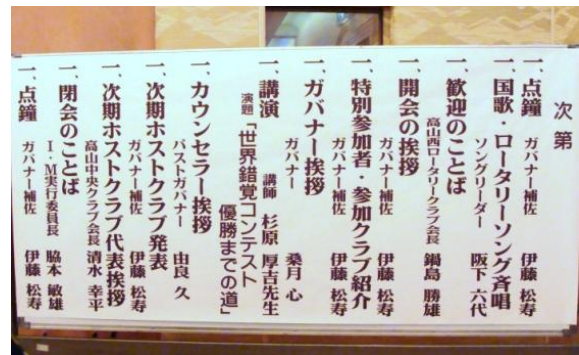 次第
一、点鐘 ガバナー補佐 伊藤 松寿
一、国歌・ロータリーソング斉唱
ソングリーダー 阪下 六代
一、歓迎のことば
高山西ロータリークラブ会長 鍋島 勝雄
一、開会の挨拶
ガバナー補佐 伊藤 松寿
一、特別参加者・参加クラブ紹介
ガバナー補佐 伊藤 松寿
一、ガバナー挨拶
ガバナー 桑月 心
一、講演 講師 杉原 厚吉先生
演題「世界錯覚コンテスト
優勝までの道」
一、カウンセラー挨拶
パストガバナー 由良 久
一、次期ホストクラブ発表
ガバナー補佐 伊藤 松寿
一、次期ホストクラブ代表挨拶
高山中央クラブ会長 清水 幸平
一、閉会のことば
I・M実行委員長 脇本 敏雄
一、点鐘 ガバナー補佐 伊藤 松寿